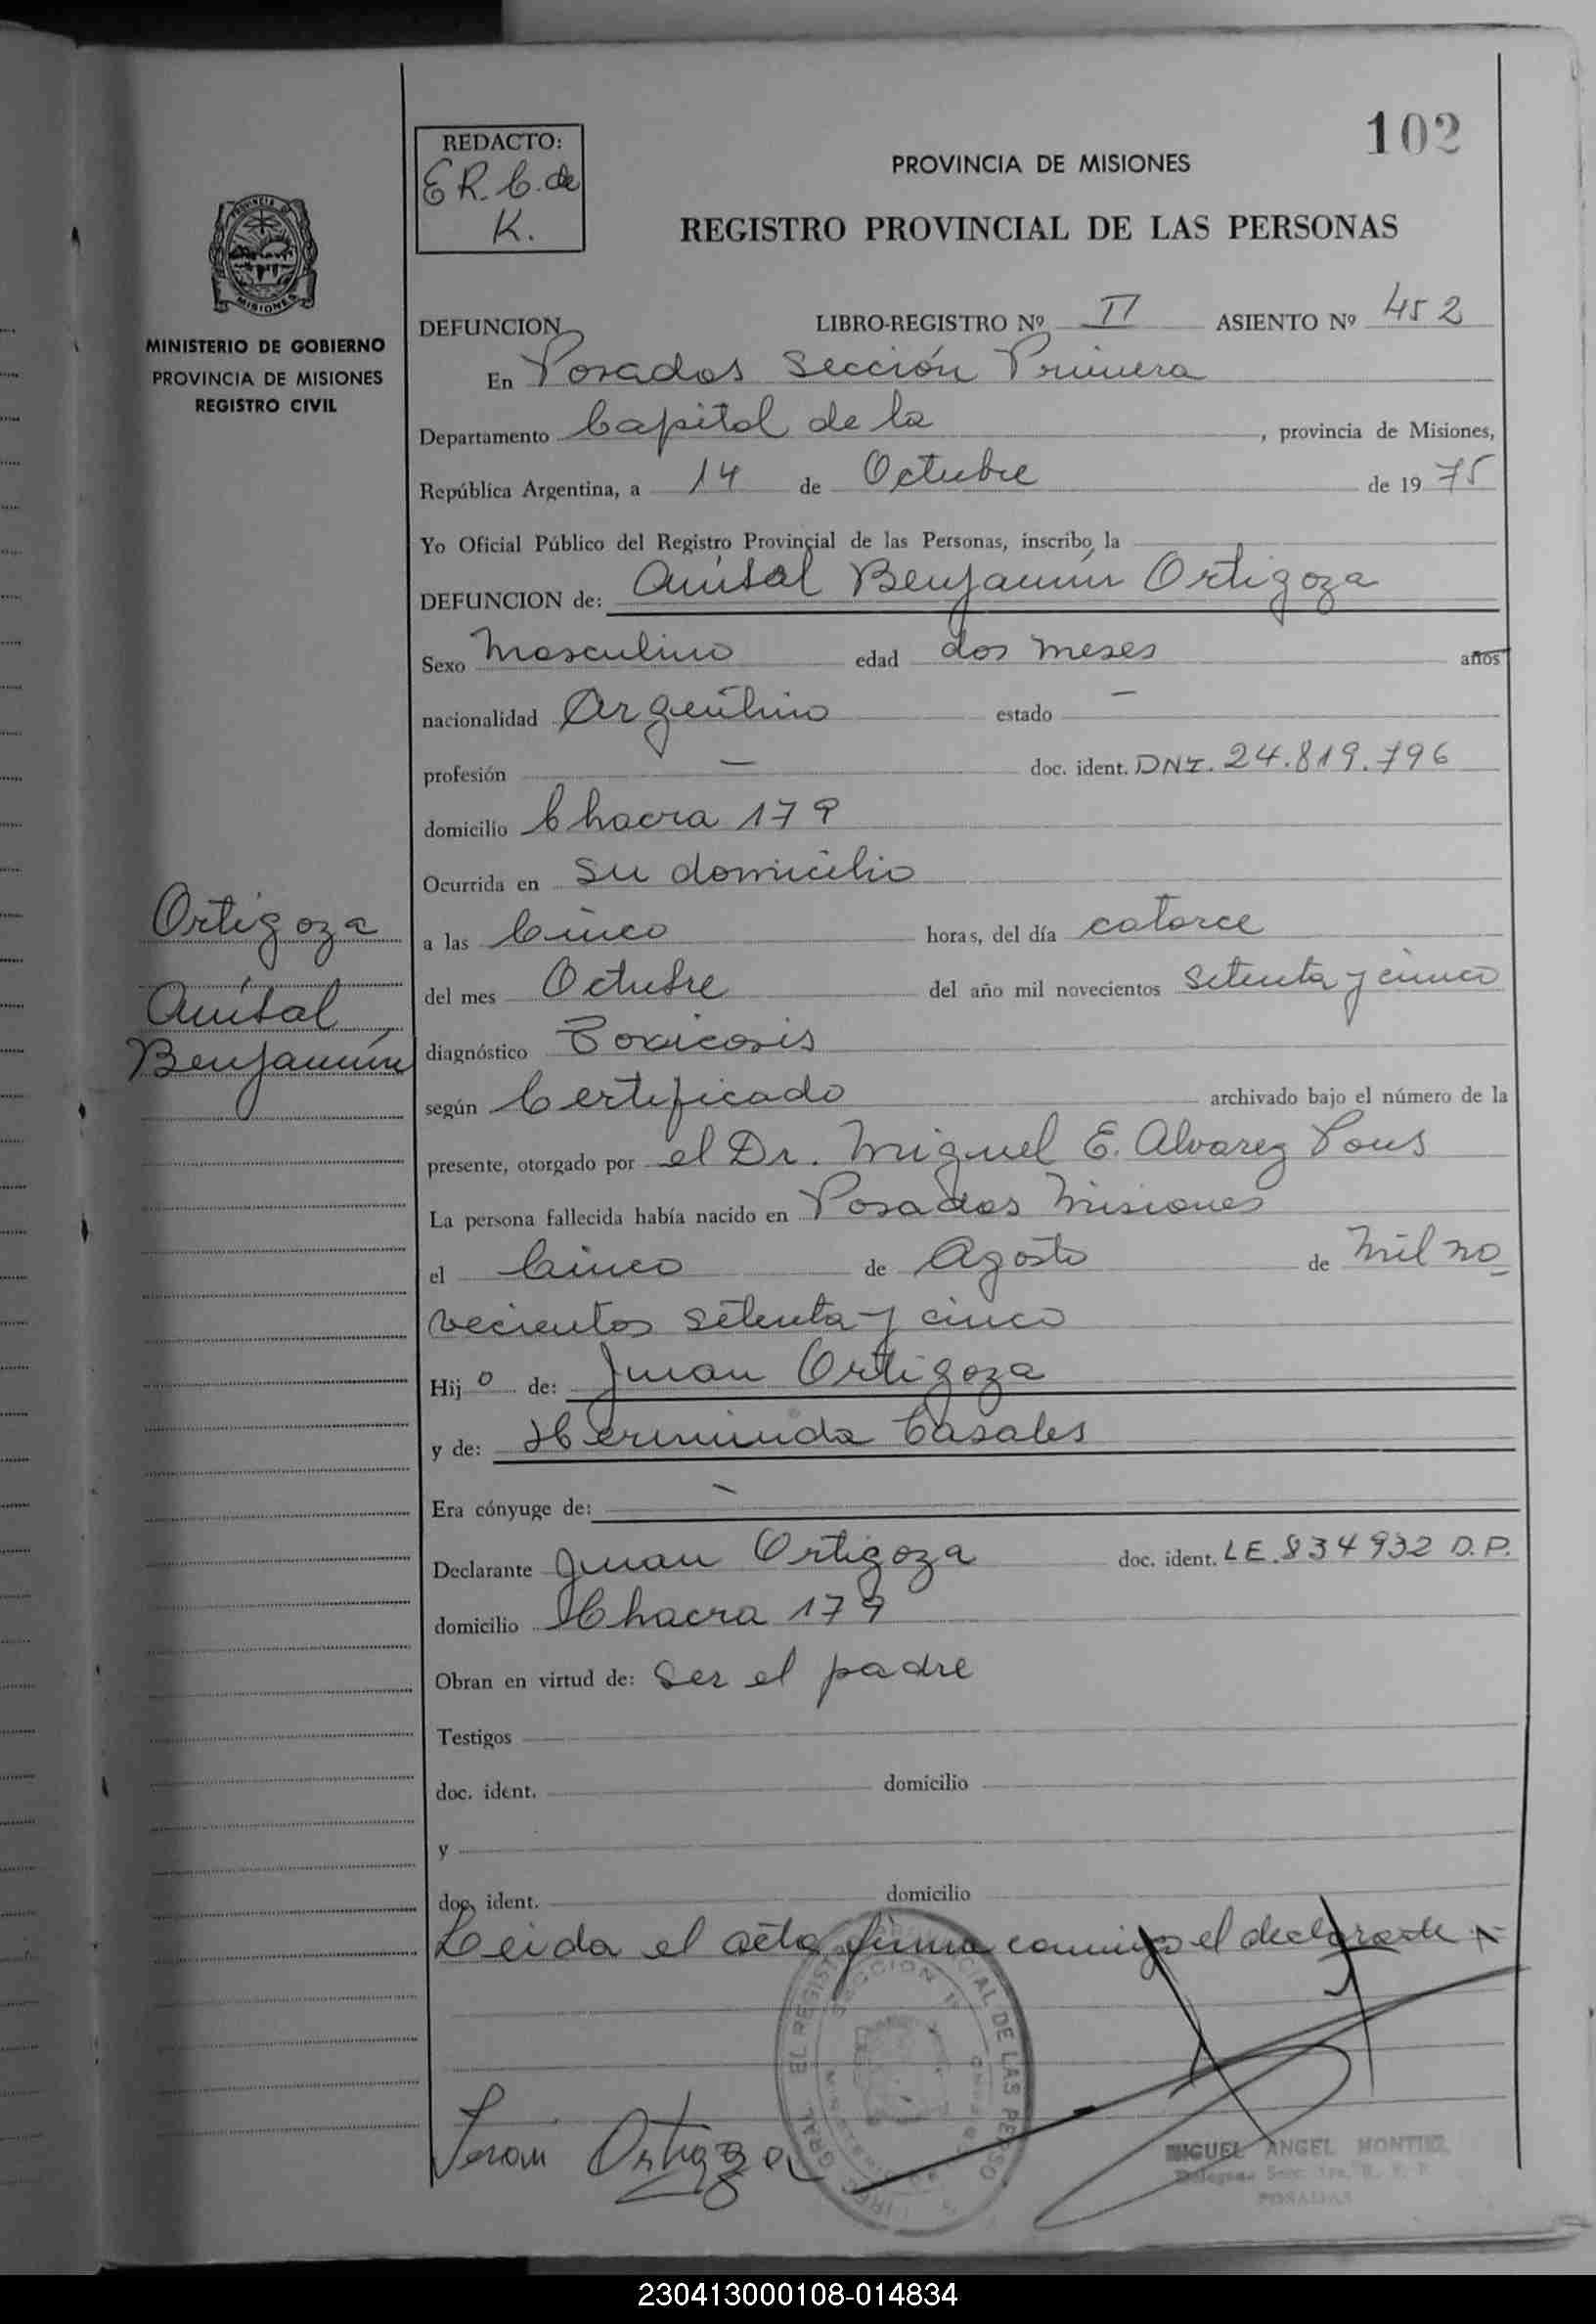 102
REDACTO:
E R. C. de
K.
PROVINCIA DE MISIONES
REGISTRO PROVINCIAL DE LAS PERSONAS
PROVINCIA DE
MISIONES
MINISTERIO DE GOBIERNO
PROVINCIA DE MISIONES
REGISTRO CIVIL
DEFUNCION LIBRO-REGISTRO Nº II ASIENTO Nº 452
En Posadas Sección Primera
Departamento Capital de la , provincia de Misiones,
República Argentina, a 14 de Octubre de 1975
Yo Oficial Público del Registro Provincial de las Personas, inscribo la
DEFUNCION de: Aníbal Benjamín Ortigoza
Sexo Masculino edad dos meses años
nacionalidad Argentino estado —
profesión — doc. ident. DNI. 24.819.796
domicilio Chacra 179
Ocurrida en su domicilio
Ortigoza
Aníbal
Benjamín
a las Cinco horas, del día catorce
del mes Octubre del año mil novecientos setenta y cinco
diagnóstico Toxicosis
según Certificado archivado bajo el número de la
presente, otorgado por el Dr. Miguel E. Alvarez Pous
La persona fallecida había nacido en Posadas Misiones
el Cinco de Agosto de Mil no
vecientos setenta y cinco
Hijo de: Juan Ortigoza
y de: Herminda Casales
Era cónyuge de: —
Declarante Juan Ortigoza doc. ident. LE. 834932 D.P.
domicilio Chacra 179
Obran en virtud de: Ser el padre
Testigos
doc. ident. domicilio
y
doc. ident. domicilio
Leida el acta firma conmigo el declarante
Juan Ortigoza
MIGUEL ANGEL MONTIEL
POSADAS
230413000108-014834